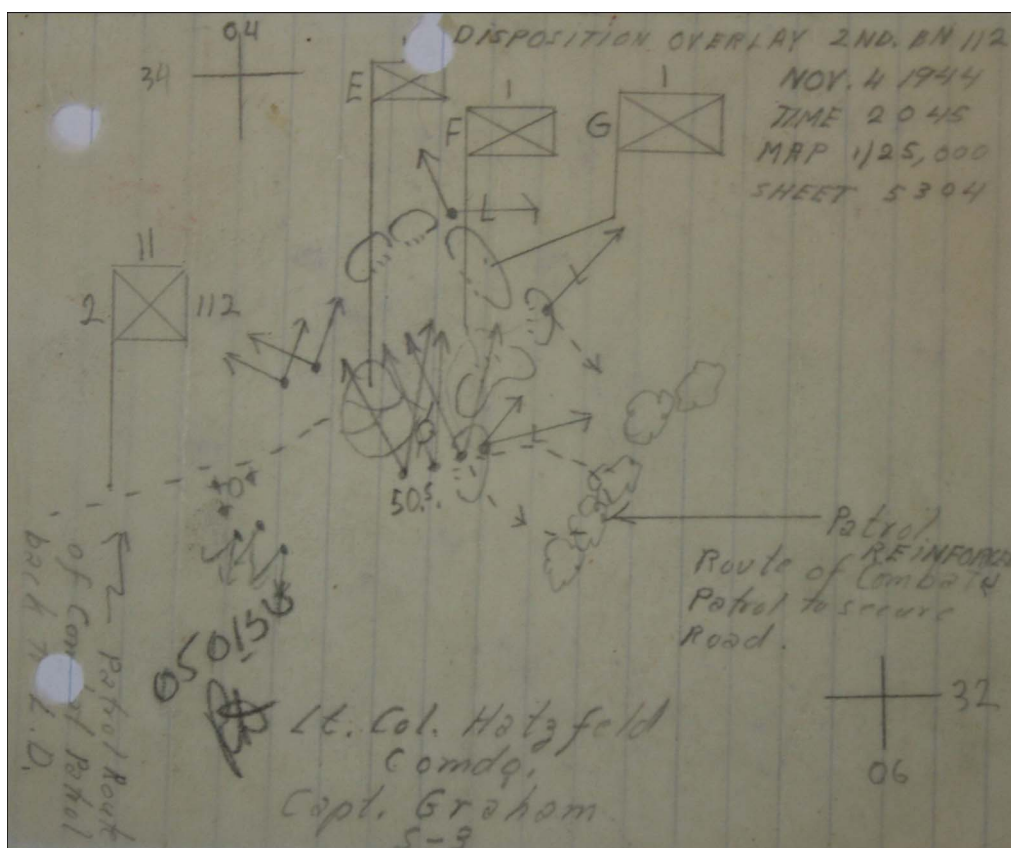 DISPOSITION OVERLAY 2ND. BN 112
NOV. 4 1944
TIME 2045
MAP 1/25,000
SHEET 5304
04
34
E
I
F
I
G
II
2
112
L
L
L
50.s.
Patrol
REINFORCED
Route of Combat
Patrol to secure
Road.
Patrol Route
of Combat Patrol
back to L.D.
050150
Lt. Col. Hatzfeld
Comdg.
Capt. Graham
S-3
32
06